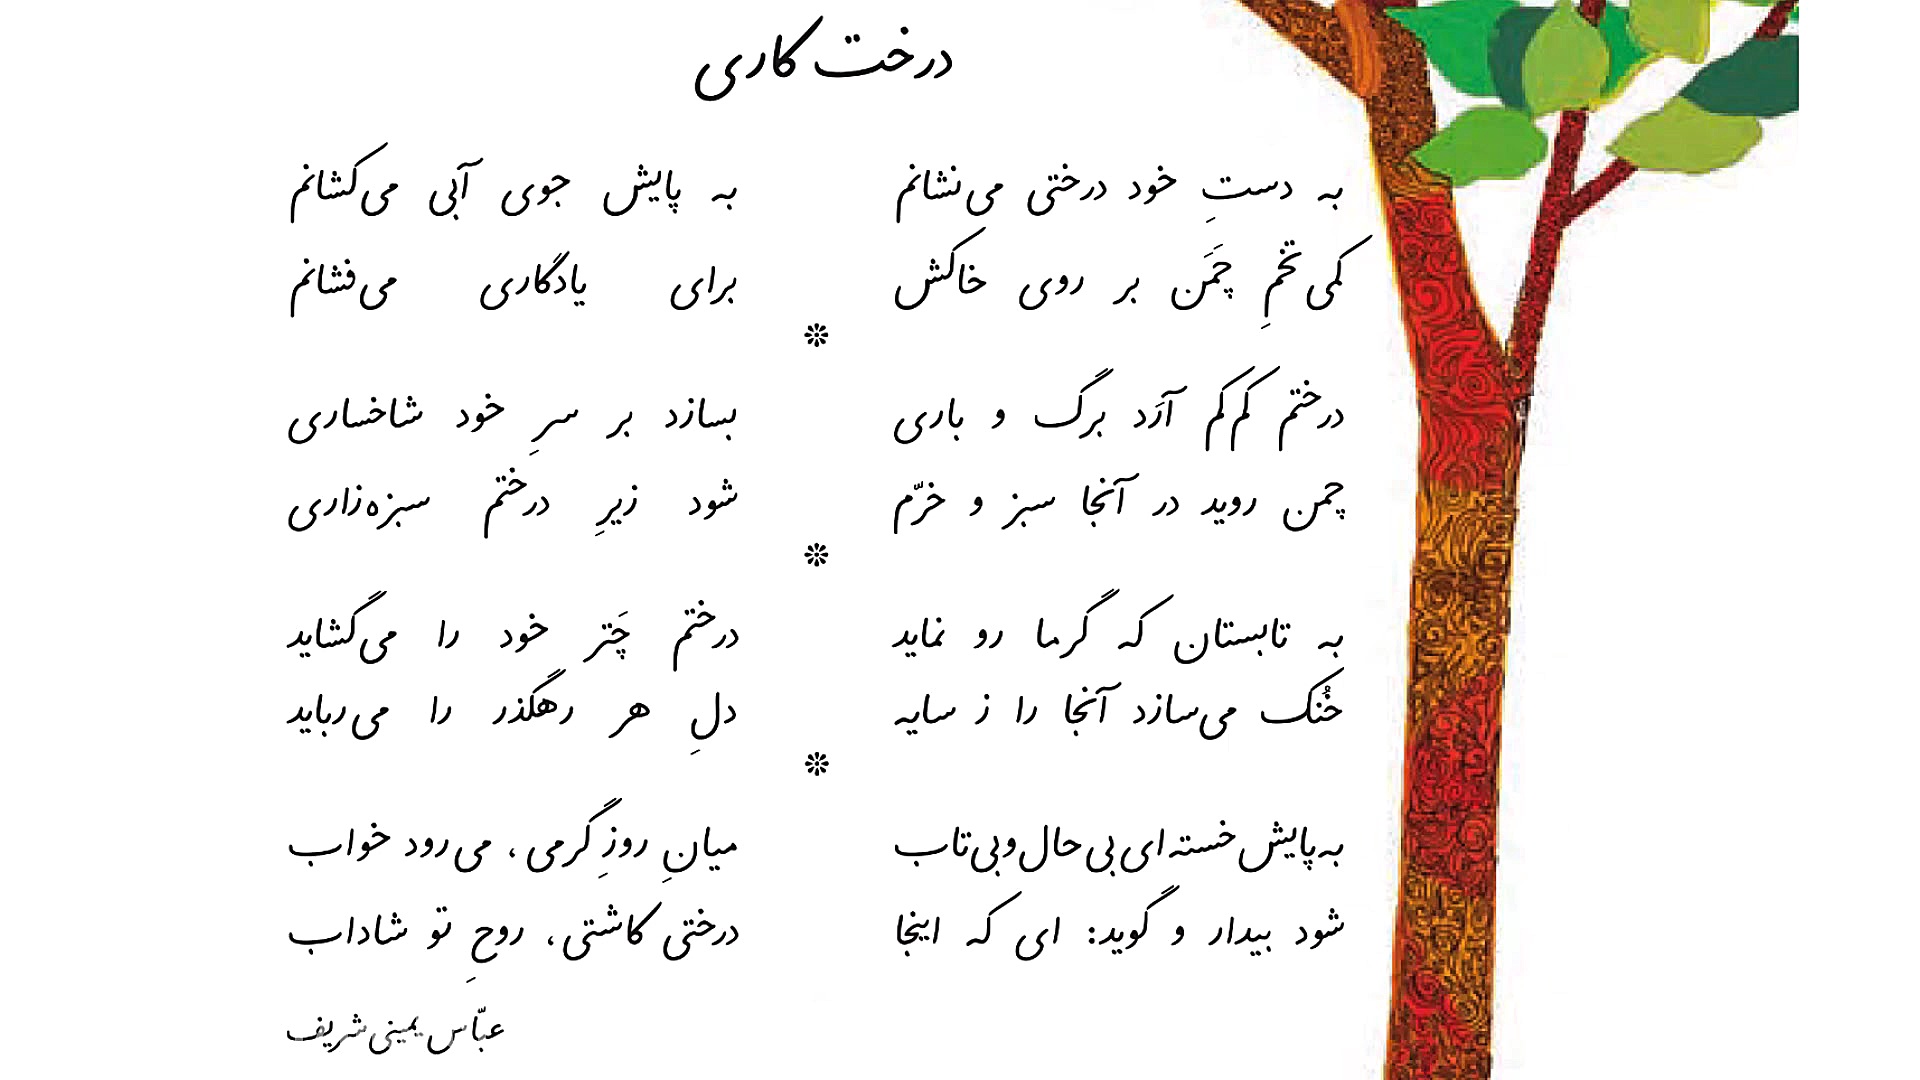 درخت کاری
به دستِ خود درختی می‌نشانم به پایش جوی آبی می‌کشانم
کمی تخمِ چمَن بر روی خاکش برای یادگاری می‌فشانم
❊
درختم کم‌کم آرَد برگ و باری بسازد بر سرِ خود شاخساری
چمن روید در آنجا سبز و خرّم شود زیرِ درختم سبزه‌زاری
❊
به تابستان که گرما رو نماید درختم چَتر خود را می‌گشاید
خُنک می‌سازد آنجا را ز سایه دلِ هر رهگذر را می‌رباید
❊
به پایش خسته‌ای بی‌حال و بی‌تاب میانِ روزِ گرمی، می‌رود خواب
شود بیدار و گوید: ای که اینجا درختی کاشتی، روحِ تو شاداب
عبّاس یمینی شریف